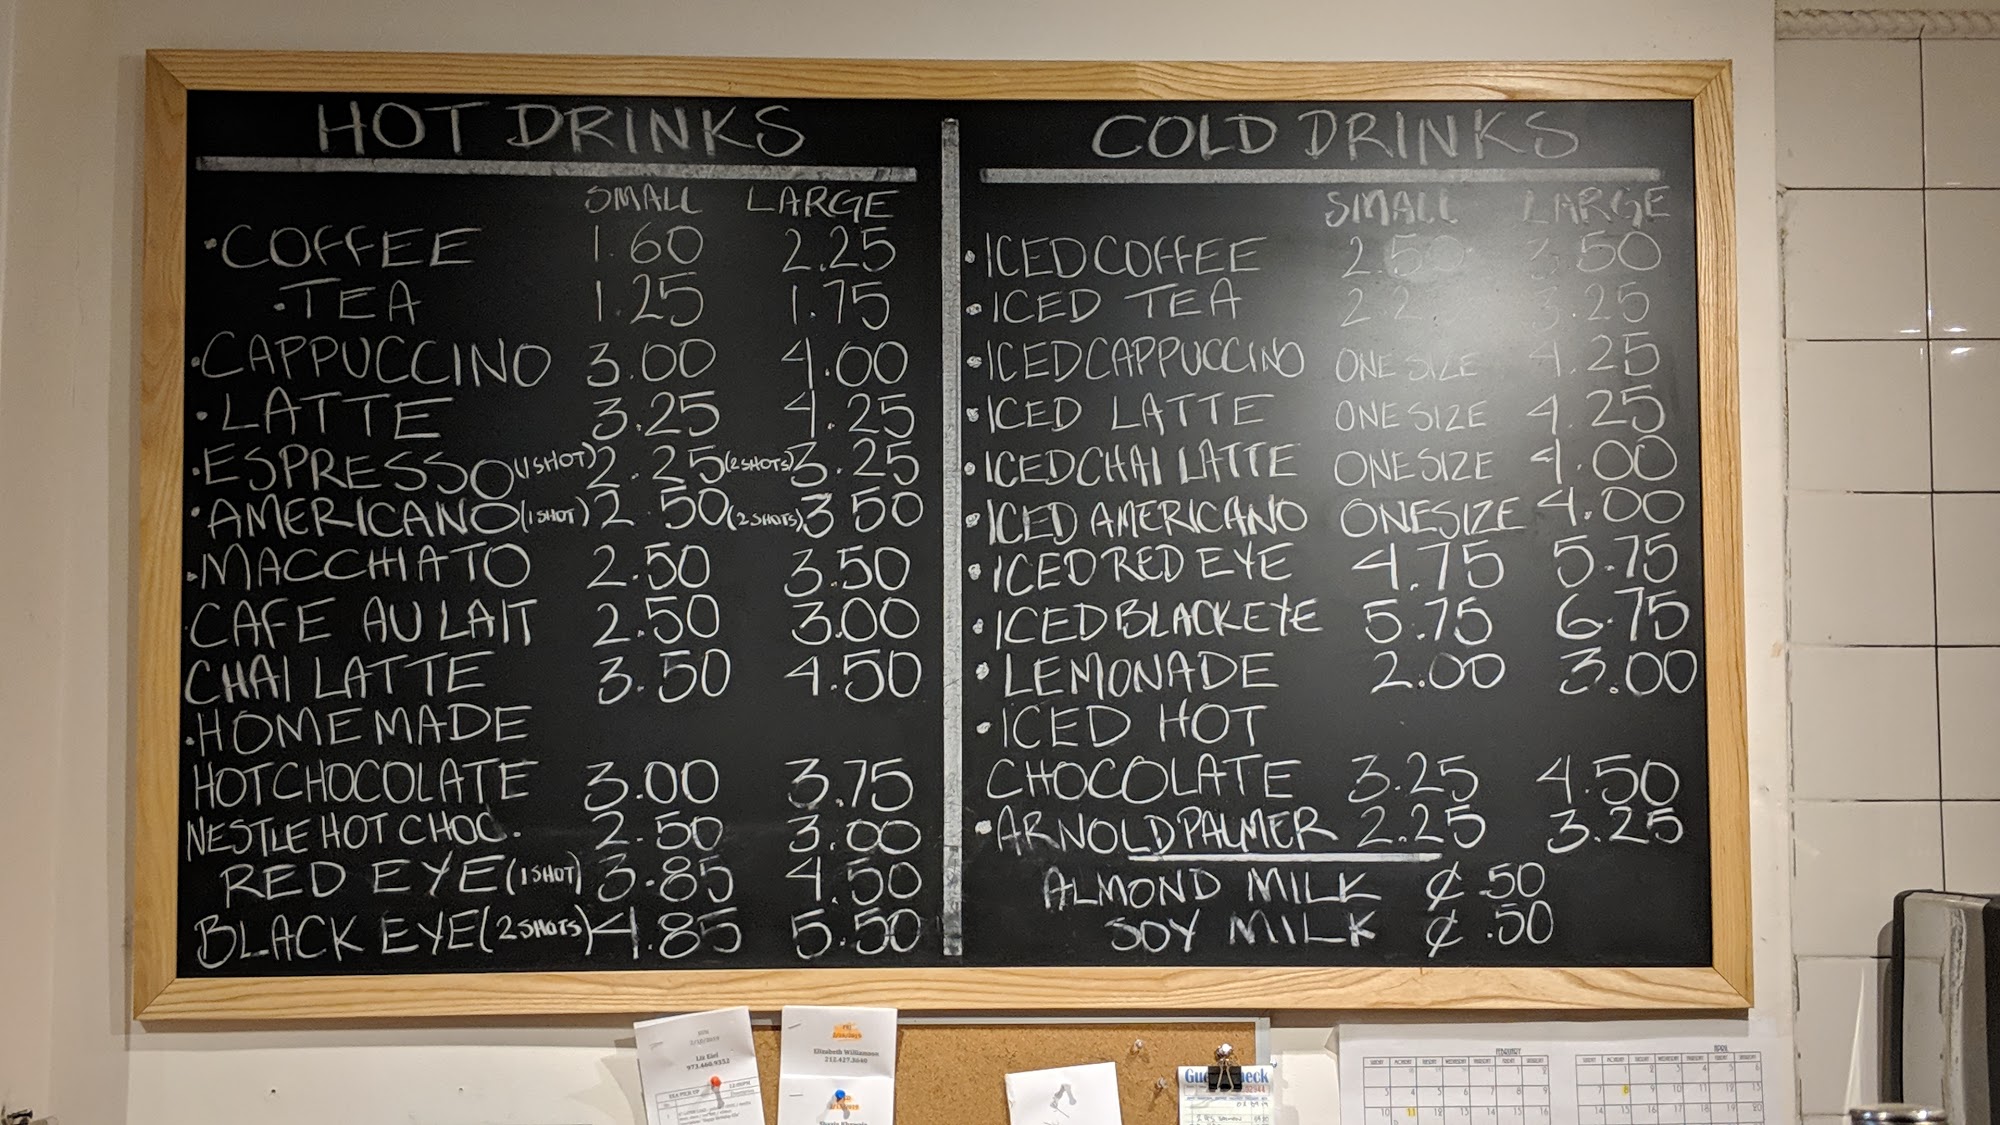 HOT DRINKS
SMALL LARGE
·COFFEE 1.60 2.25
·TEA 1.25 1.75
·CAPPUCCINO 3.00 4.00
·LATTE 3.25 4.25
·ESPRESSO (1 SHOT) 2.25 (2 SHOTS) 3.25
·AMERICANO (1 SHOT) 2.50 (2 SHOTS) 3.50
·MACCHIATO 2.50 3.50
CAFE AU LAIT 2.50 3.00
CHAI LATTE 3.50 4.50
·HOMEMADE
HOT CHOCOLATE 3.00 3.75
NESTLE HOT CHOC. 2.50 3.00
RED EYE (1 SHOT) 3.85 4.50
BLACK EYE (2 SHOTS) 4.85 5.50
COLD DRINKS
SMALL LARGE
·ICED COFFEE 2.50 3.50
·ICED TEA 2.2 3.25
·ICED CAPPUCCINO ONE SIZE 4.25
·ICED LATTE ONE SIZE 4.25
·ICED CHAI LATTE ONE SIZE 4.00
·ICED AMERICANO ONE SIZE 4.00
·ICED RED EYE 4.75 5.75
·ICED BLACK EYE 5.75 6.75
·LEMONADE 2.00 3.00
·ICED HOT
CHOCOLATE 3.25 4.50
·ARNOLD PALMER 2.25 3.25
ALMOND MILK ¢ .50
SOY MILK ¢ .50
Liz Kiel
973.460.9332
Elizabeth Williamson
212.427.8640
FEBRUARY
APRIL